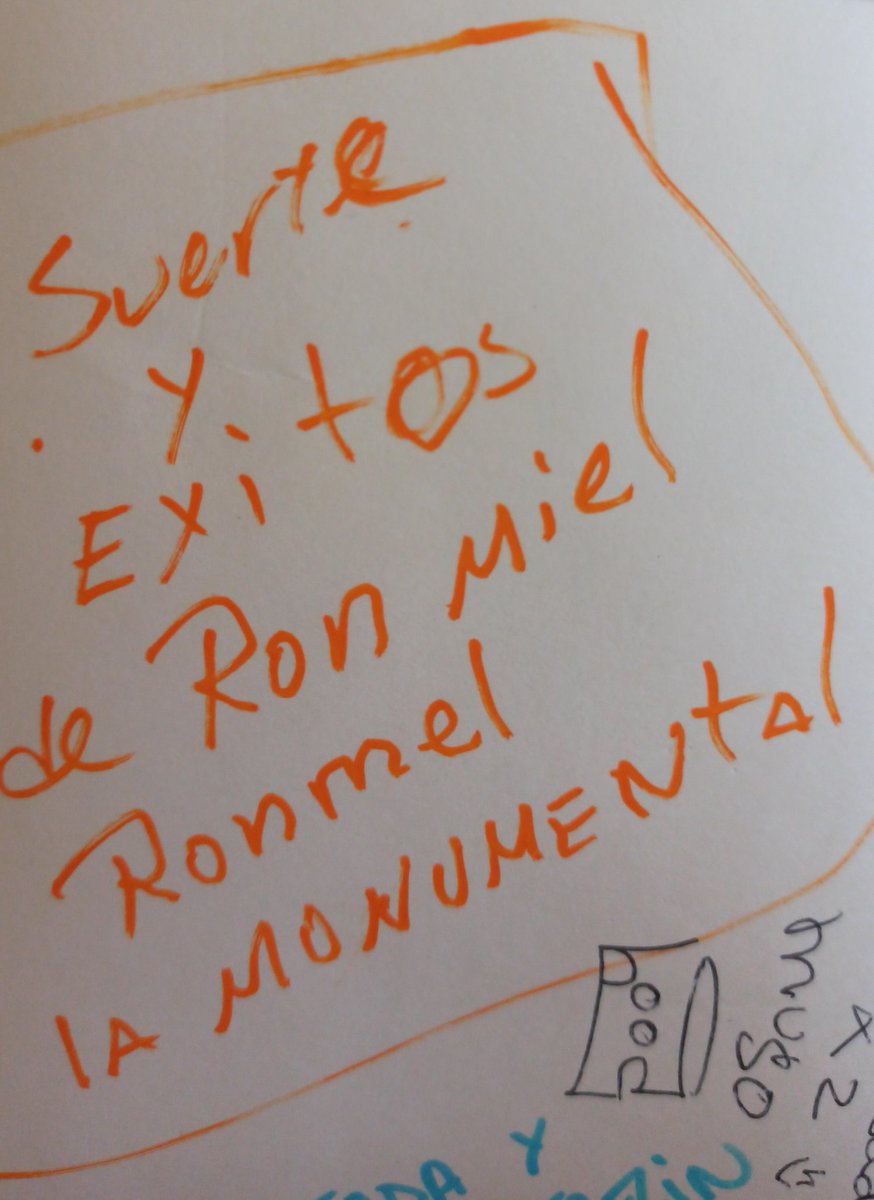 Suerte
Y
Exitos
de Ron Miel
Ronmel
lA MONUMENtAl
Y